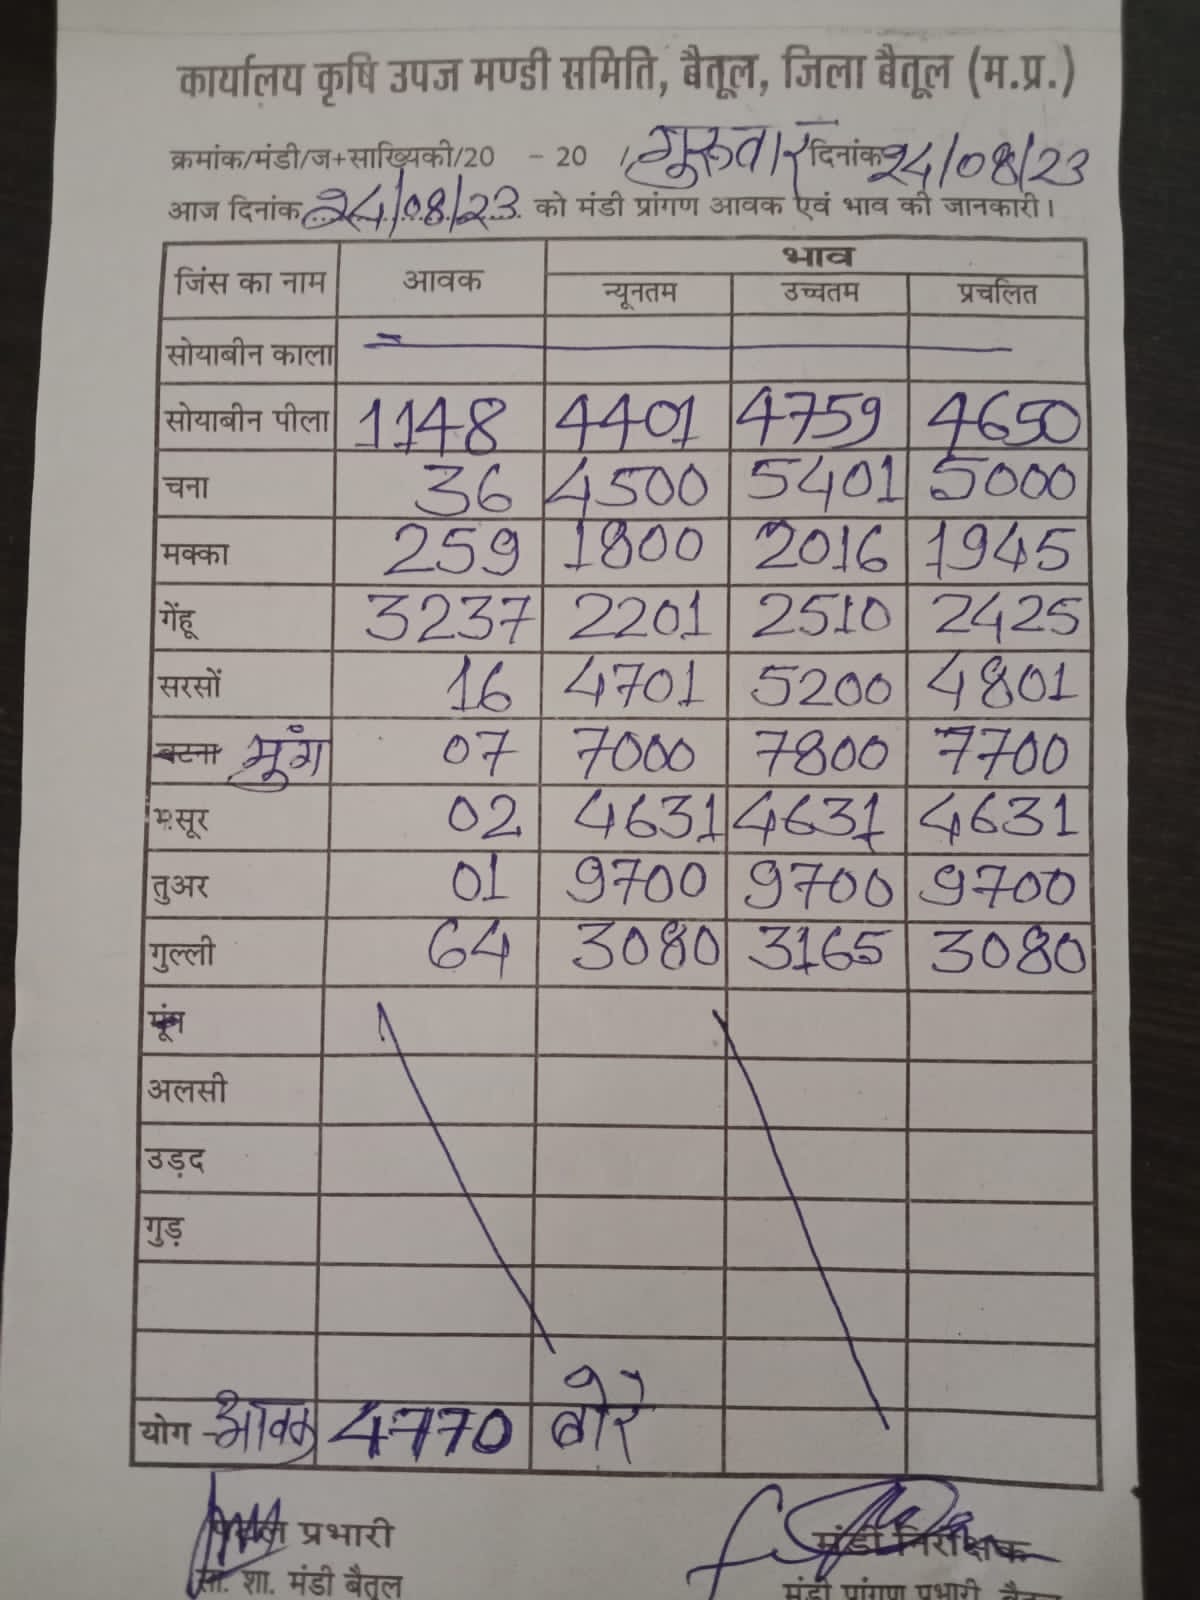 कार्यालय कृषि उपज मण्डी समिति, बैतूल, जिला बैतूल (म.प्र.)
क्रमांक/मंडी/ज+साख्यिकी/20 - 20 / गुरुवार दिनांक 24/08/23
आज दिनांक 24/08/23 को मंडी प्रांगण आवक एवं भाव की जानकारी।
जिंस का नाम आवक भाव
न्यूनतम उच्चतम प्रचलित
सोयाबीन काला
सोयाबीन पीला 1148 4401 4759 4650
चना 36 4500 5401 5000
मक्का 259 1800 2016 1945
गेंहू 3237 2201 2510 2425
सरसों 16 4701 5200 4801
बटना मूंग 07 7000 7800 7700
मसूर 02 4631 4631 4631
तुअर 01 9700 9700 9700
गुल्ली 64 3080 3165 3080
मूंग
अलसी
उड़द
गुड़
योग आवक 4770 बोरे
प्रभारी मंडी निरीक्षक
सा. शा. मंडी बैतूल मंडी प्रांगण प्रभारी, बैतूल